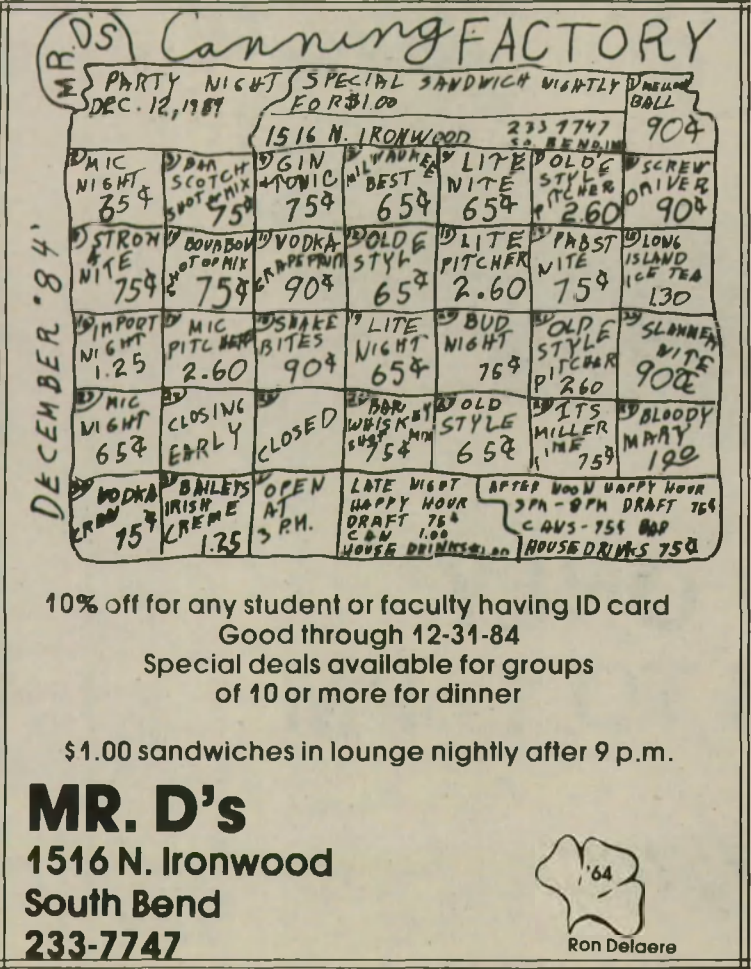 MR. D'S
Canning FACTORY
PARTY NIGHT
DEC. 12, 1984
SPECIAL SANDWICH NIGHTLY
FOR $1.00
1516 N. IRONWOOD
233 7747
SO. BEND, IN
1) MELLON
BALL
90¢
DECEMBER '84'
2) MIC
NIGHT
65¢
3) BAR
SCOTCH
SHOT OR MIX
75¢
4) GIN
+ TONIC
75¢
5) MILWAUKEE
BEST
65¢
6) LITE
NITE
65¢
7) OLDE
STYLE
PITCHER
2.60
8) SCREW
DRIVER
90¢
9) STROH
NITE
75¢
10) BOURBON
SHOT OR MIX
75¢
11) VODKA
GRAPEFRUIT
90¢
12) OLDE
STYLE
65¢
13) LITE
PITCHER
2.60
14) PABST
NITE
75¢
15) LONG
ISLAND
ICE TEA
1.30
16) IMPORT
NIGHT
1.25
17) MIC
PITCHER
2.60
18) SNAKE
BITES
90¢
19) LITE
NIGHT
65¢
20) BUD
NIGHT
75¢
21) OLD
STYLE
PITCHER
2.60
22) SLAMMER
NITE
90¢
23) MIC
NIGHT
65¢
24) CLOSING
EARLY
25)
CLOSED
26) BAR
WHISKEY
SHOT MIX
75¢
27) OLD
STYLE
65¢
28) ITS
MILLER
TIME
75¢
29) BLOODY
MARY
1.00
30) VODKA
CRAN
75¢
31) BAILEYS
IRISH
CREME
1.25
OPEN
AT
3 P.M.
LATE NIGHT
HAPPY HOUR
DRAFT 75¢
CAN 1.00
HOUSE DRINKS $1.00
AFTER NOON HAPPY HOUR
3PM - 8PM DRAFT 75¢
CANS - 75¢ BAR
HOUSE DRINKS 75¢
10% off for any student or faculty having ID card
Good through 12-31-84
Special deals available for groups
of 10 or more for dinner
$1.00 sandwiches in lounge nightly after 9 p.m.
MR. D's
1516 N. Ironwood
South Bend
233-7747
'64
Ron Delaere